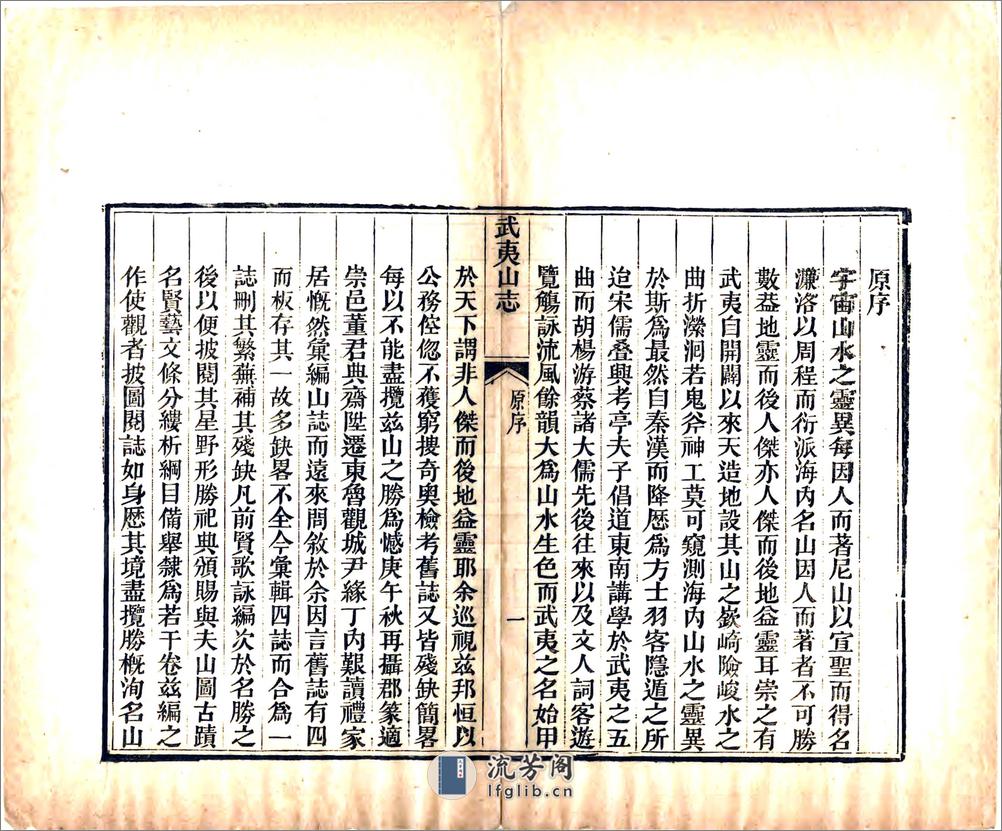 原序
宇宙山水之靈異每因人而著尼山以宣聖而得名
濂洛以周程而衍派海內名山因人而著者不可勝
數益地靈而後人傑亦人傑而後地益靈耳崇之有
武夷自開闢以來天造地設其山之嶔崎險峻水之
曲折瀠洄若鬼斧神工莫可窺測海內山水之靈異
於斯爲最然自秦漢而降歷爲方士羽客隱遁之所
迨宋儒叠興考亭夫子倡道東南講學於武夷之五
曲而胡楊游蔡諸大儒先後往來以及文人詞客遊
覽觴詠流風餘韻大爲山水生色而武夷之名始甲
武夷山志
原序
一
於天下謂非人傑而後地益靈耶余巡視兹邦恒以
公務倥偬不獲窮搜奇奧檢考舊誌又皆殘缺簡畧
每以不能盡攬兹山之勝爲憾庚午秋再攝郡篆適
崇邑董君典齋陞遷東魯觀城尹緣丁內艱讀禮家
居慨然彙編山誌而遠來問敘於余因言舊誌有四
而板存其一故多缺畧不全今彙輯四誌而合爲一
誌刪其繁蕪補其殘缺凡前賢歌詠編次於名勝之
後以便披閱其星野形勝祀典頒賜與夫山圖古蹟
名賢藝文條分縷析綱目備舉隸爲若干卷兹編之
作使觀者披圖閱誌如身歷其境盡攬勝概洵名山
流芳阁
lfglib.cn